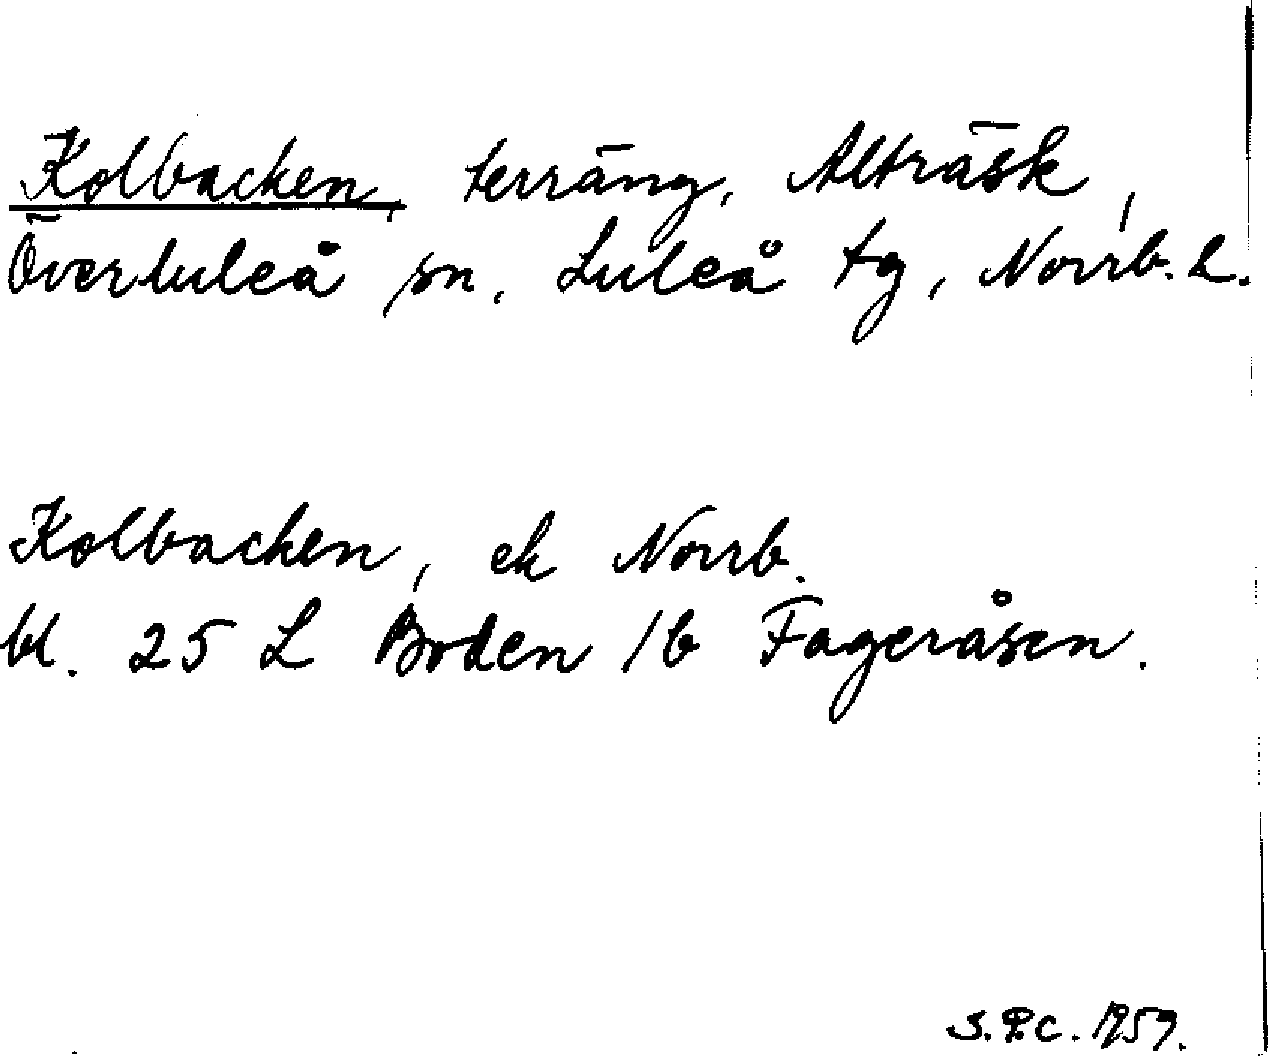 Kolbacken, terräng, Alträsk,
Överluleå sn, Luleå tg, Norrb. l.
Kolbacken, ek Norrb.
bl. 25 L Boden 1b Fageråsen.
S.P.C. 1959.